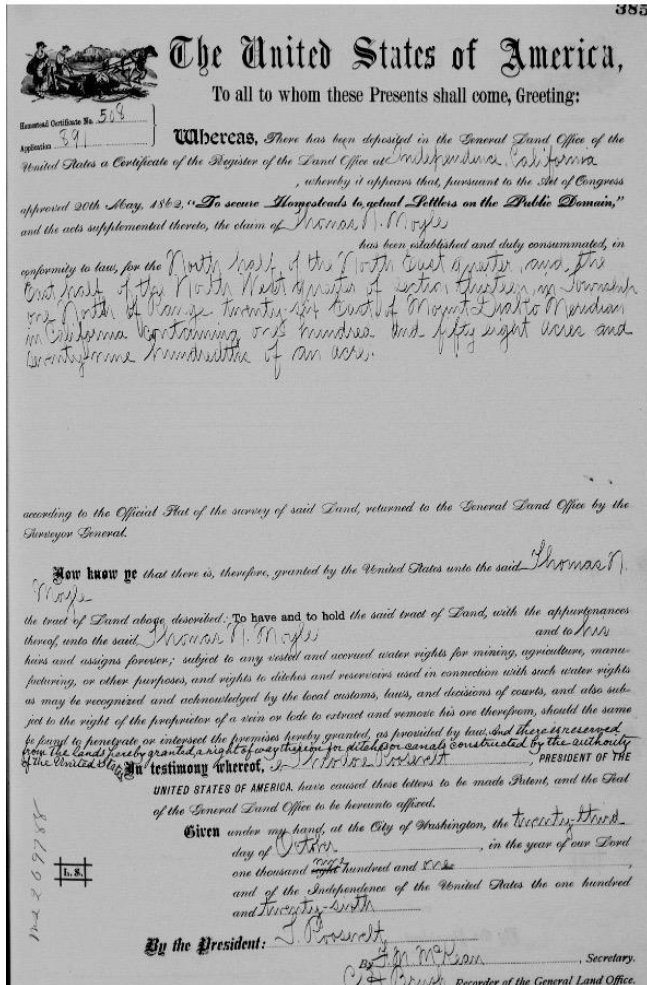 385
The United States of America,
To all to whom these Presents shall come, Greeting:
Homestead Certificate No. 508
Application 891
Whereas, There has been deposited in the General Land Office of the
United States a Certificate of the Register of the Land Office at Independence, California
, whereby it appears that, pursuant to the Act of Congress
approved 20th May, 1862, "To secure Homesteads to actual Settlers on the Public Domain,"
and the acts supplemental thereto, the claim of Thomas N. Moyle
has been established and duly consummated, in
conformity to law, for the North half of the North East quarter, and the
East half of the North West quarter of section thirteen, in Township
one North of Range twenty-six East of Mount Diablo Meridian
in California containing one hundred and fifty eight acres and
hundredths of an acre.
according to the Official Plat of the survey of said Land, returned to the General Land Office by the
Surveyor General.
Now know ye that there is, therefore, granted by the United States unto the said Thomas N.
Moyle
the tract of Land above described: To have and to hold the said tract of Land, with the appurtenances
thereof, unto the said Thomas N. Moyle and to his
heirs and assigns forever; subject to any vested and accrued water rights for mining, agriculture, manu-
facturing, or other purposes, and rights to ditches and reservoirs used in connection with such water rights
as may be recognized and acknowledged by the local customs, laws, and decisions of courts, and also sub-
ject to the right of the proprietor of a vein or lode to extract and remove his ore therefrom, should the same
be found to penetrate or intersect the premises hereby granted, as provided by law. And there is reserved
from the lands hereby granted, a right of way thereon for ditches or canals constructed by the authority
of the United States.
In testimony whereof, I, Theodore Roosevelt, PRESIDENT OF THE
UNITED STATES OF AMERICA, have caused these letters to be made Patent, and the Seal
of the General Land Office to be hereunto affixed.
Given under my hand, at the City of Washington, the twenty-third
day of October, in the year of our Lord
one thousand eight nine hundred and one,
and of the Independence of the United States the one hundred
and twenty-sixth
L. S.
By the President: T. Roosevelt,
By F. M. McKean, Secretary.
C. H. Brush, Recorder of the General Land Office.